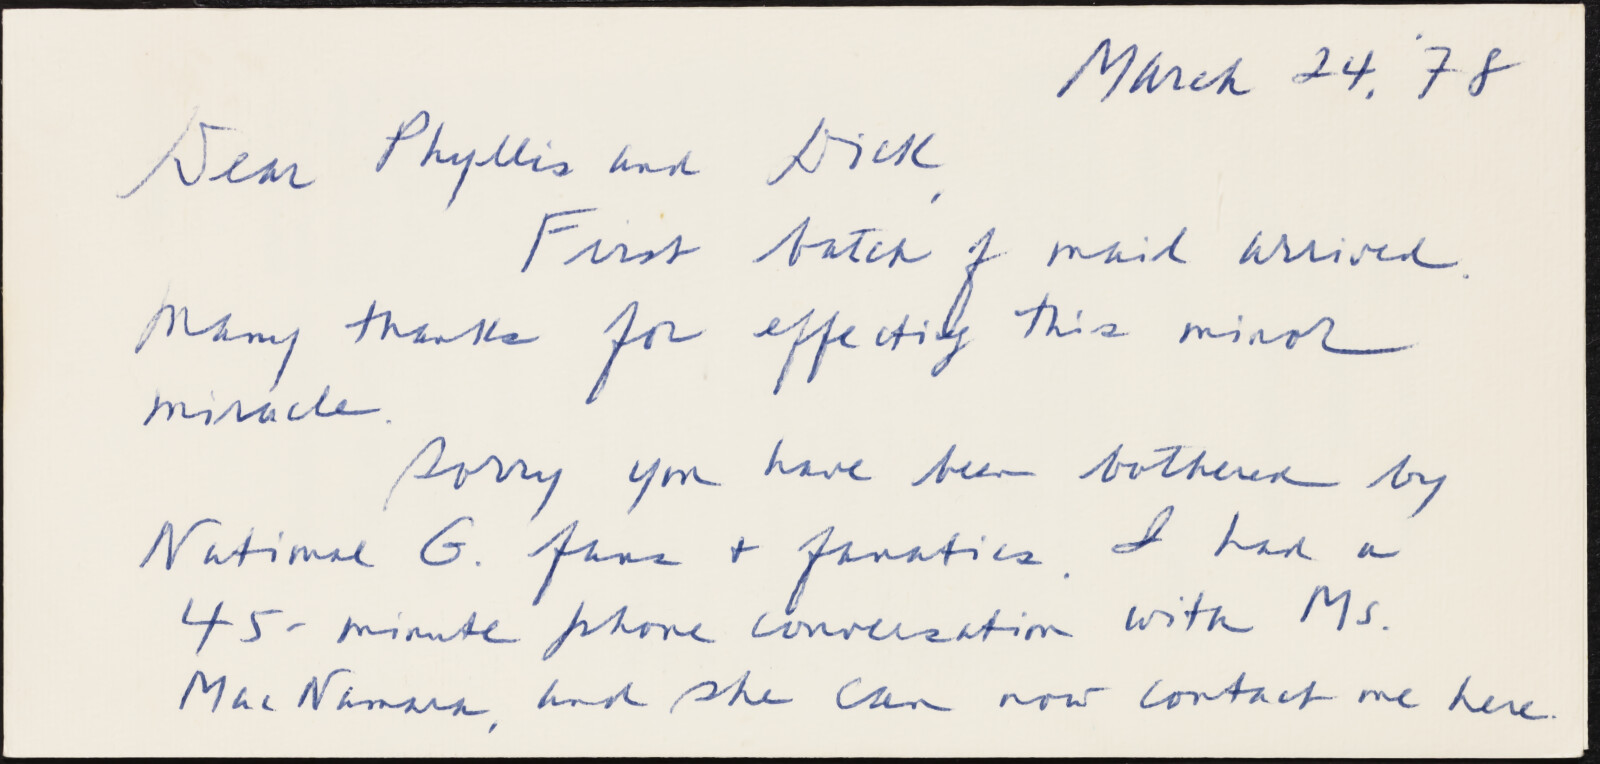 March 24, '78
Dear Phyllis and Dick,
First batch of mail arrived.
Many thanks for effecting this minor
miracle.
Sorry you have been bothered by
National G. fans + fanatics. I had a
45-minute phone conversation with Ms.
MacNamara, and she can now contact me here.